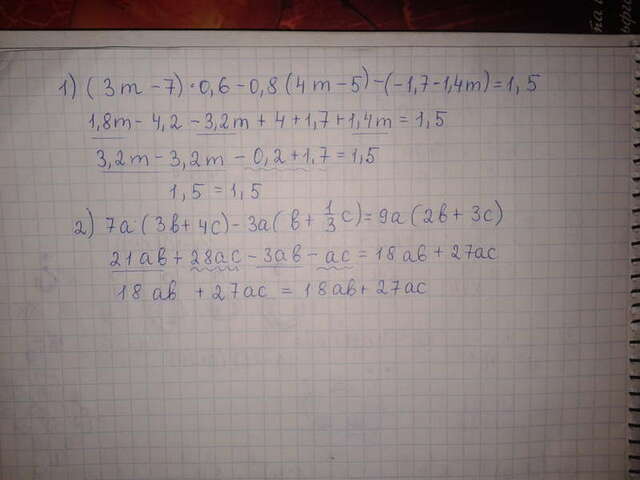 1) (3m-7)·0,6-0,8(4m-5)-(-1,7-1,4m)=1,5
1,8m-4,2-3,2m+4+1,7+1,4m=1,5
3,2m-3,2m-0,2+1,7=1,5
1,5=1,5
2) 7a·(3b+4c)-3a(b+1/3c)=9a(2b+3c)
21ab+28ac-3ab-ac=18ab+27ac
18ab+27ac=18ab+27ac